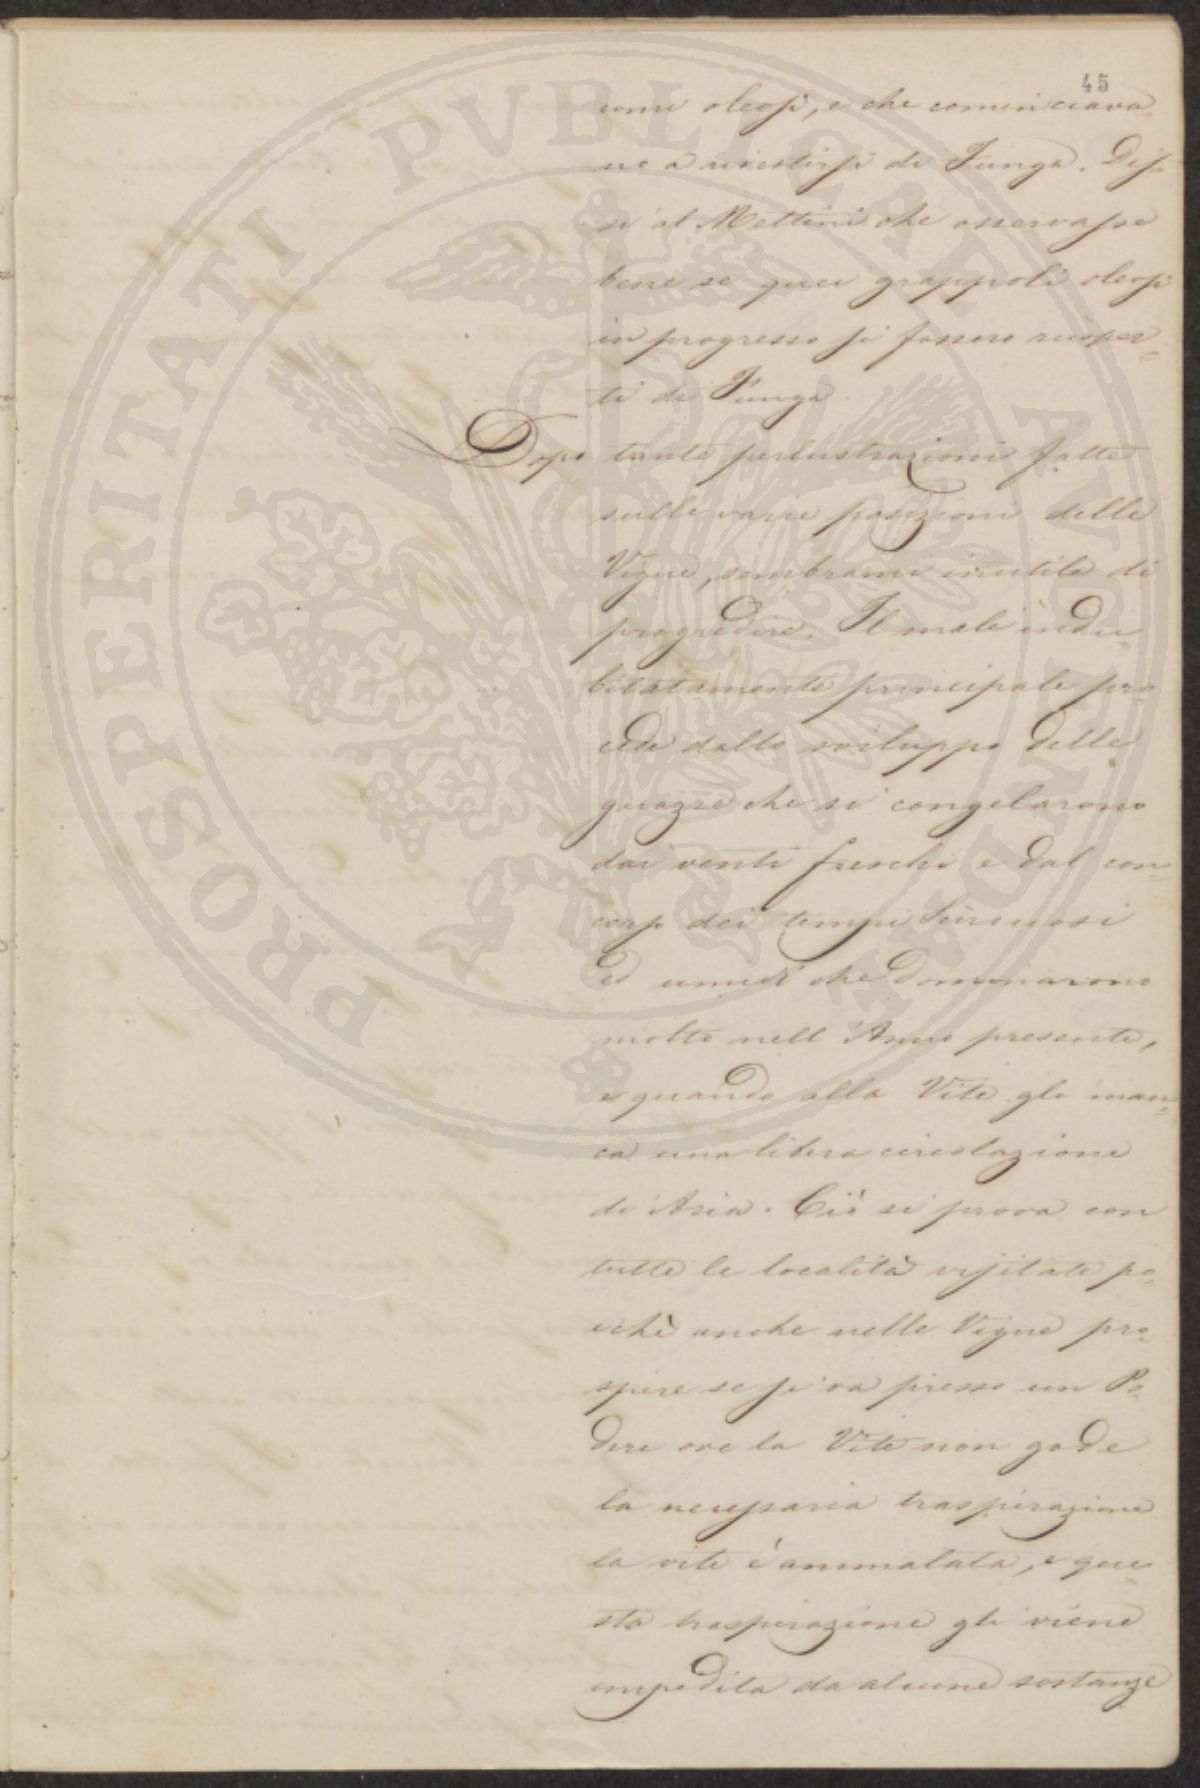 45
come oleosi, e che comincciava-
no a rivestirsi di Funga. Dis-
si al Mettini che osservasse
bene se quei grappoli oleosi
in progresso si fossero ricoper=
ti di Funga.
Dopo tante perlustrazioni fatte
sulle varie posizioni delle
Vigne, sembrami inutile di
progredire. Il male indu
bitatamente principale pro
cede dallo sviluppo delle
guazze che si congelarono
dai venti freschi e dal con=
corso dei tempi
ed umidi che dominarono
molto nell'Anno presente,
e quando alla Vite gli man=
ca una libera circolazione
di Aria. Ciò si prova con
tutte le località visitate po=
ichè anche nelle Vigne pro=
spere se si va presso un Po=
dere ove la Vite non gode
la necessaria traspirazione
la vite è ammalata, e que
sta traspirazione gli viene
impedita da alcune sostanze
PROSPERITATI PVBLICAE AVGENDAE